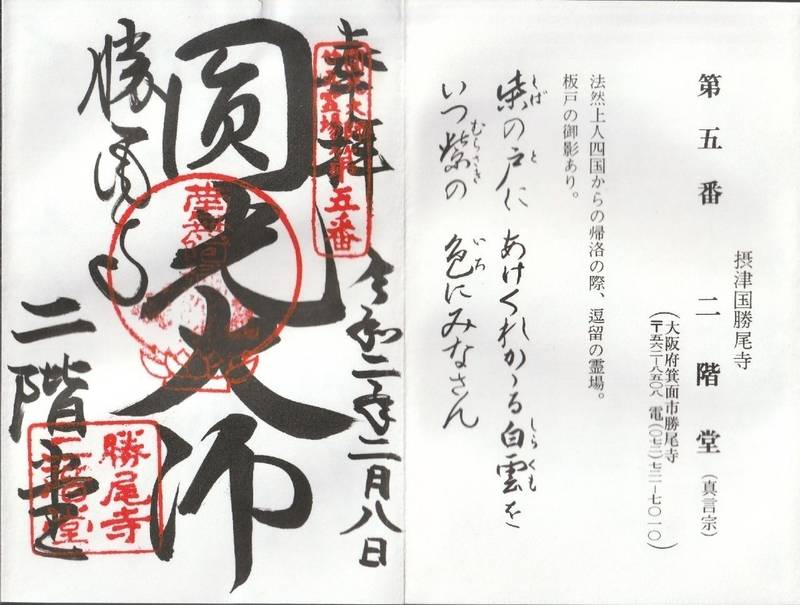 第五番 二階堂(真言宗)
摂津国勝尾寺
(大阪府箕面市勝尾寺
〒五六二−八五〇八 電(〇七二)七二一−七〇一〇)
法然上人四国からの帰洛の際、逗留の霊場。
板戸の御影あり。
柴の戸に あけくれかゝる白雲を
しば と しらくも
いつ紫の 色にみなさん
むらさき いろ
奉拝
第五番
令和二年二月八日
圓光大師
勝尾寺
二階堂
勝尾寺
二階堂